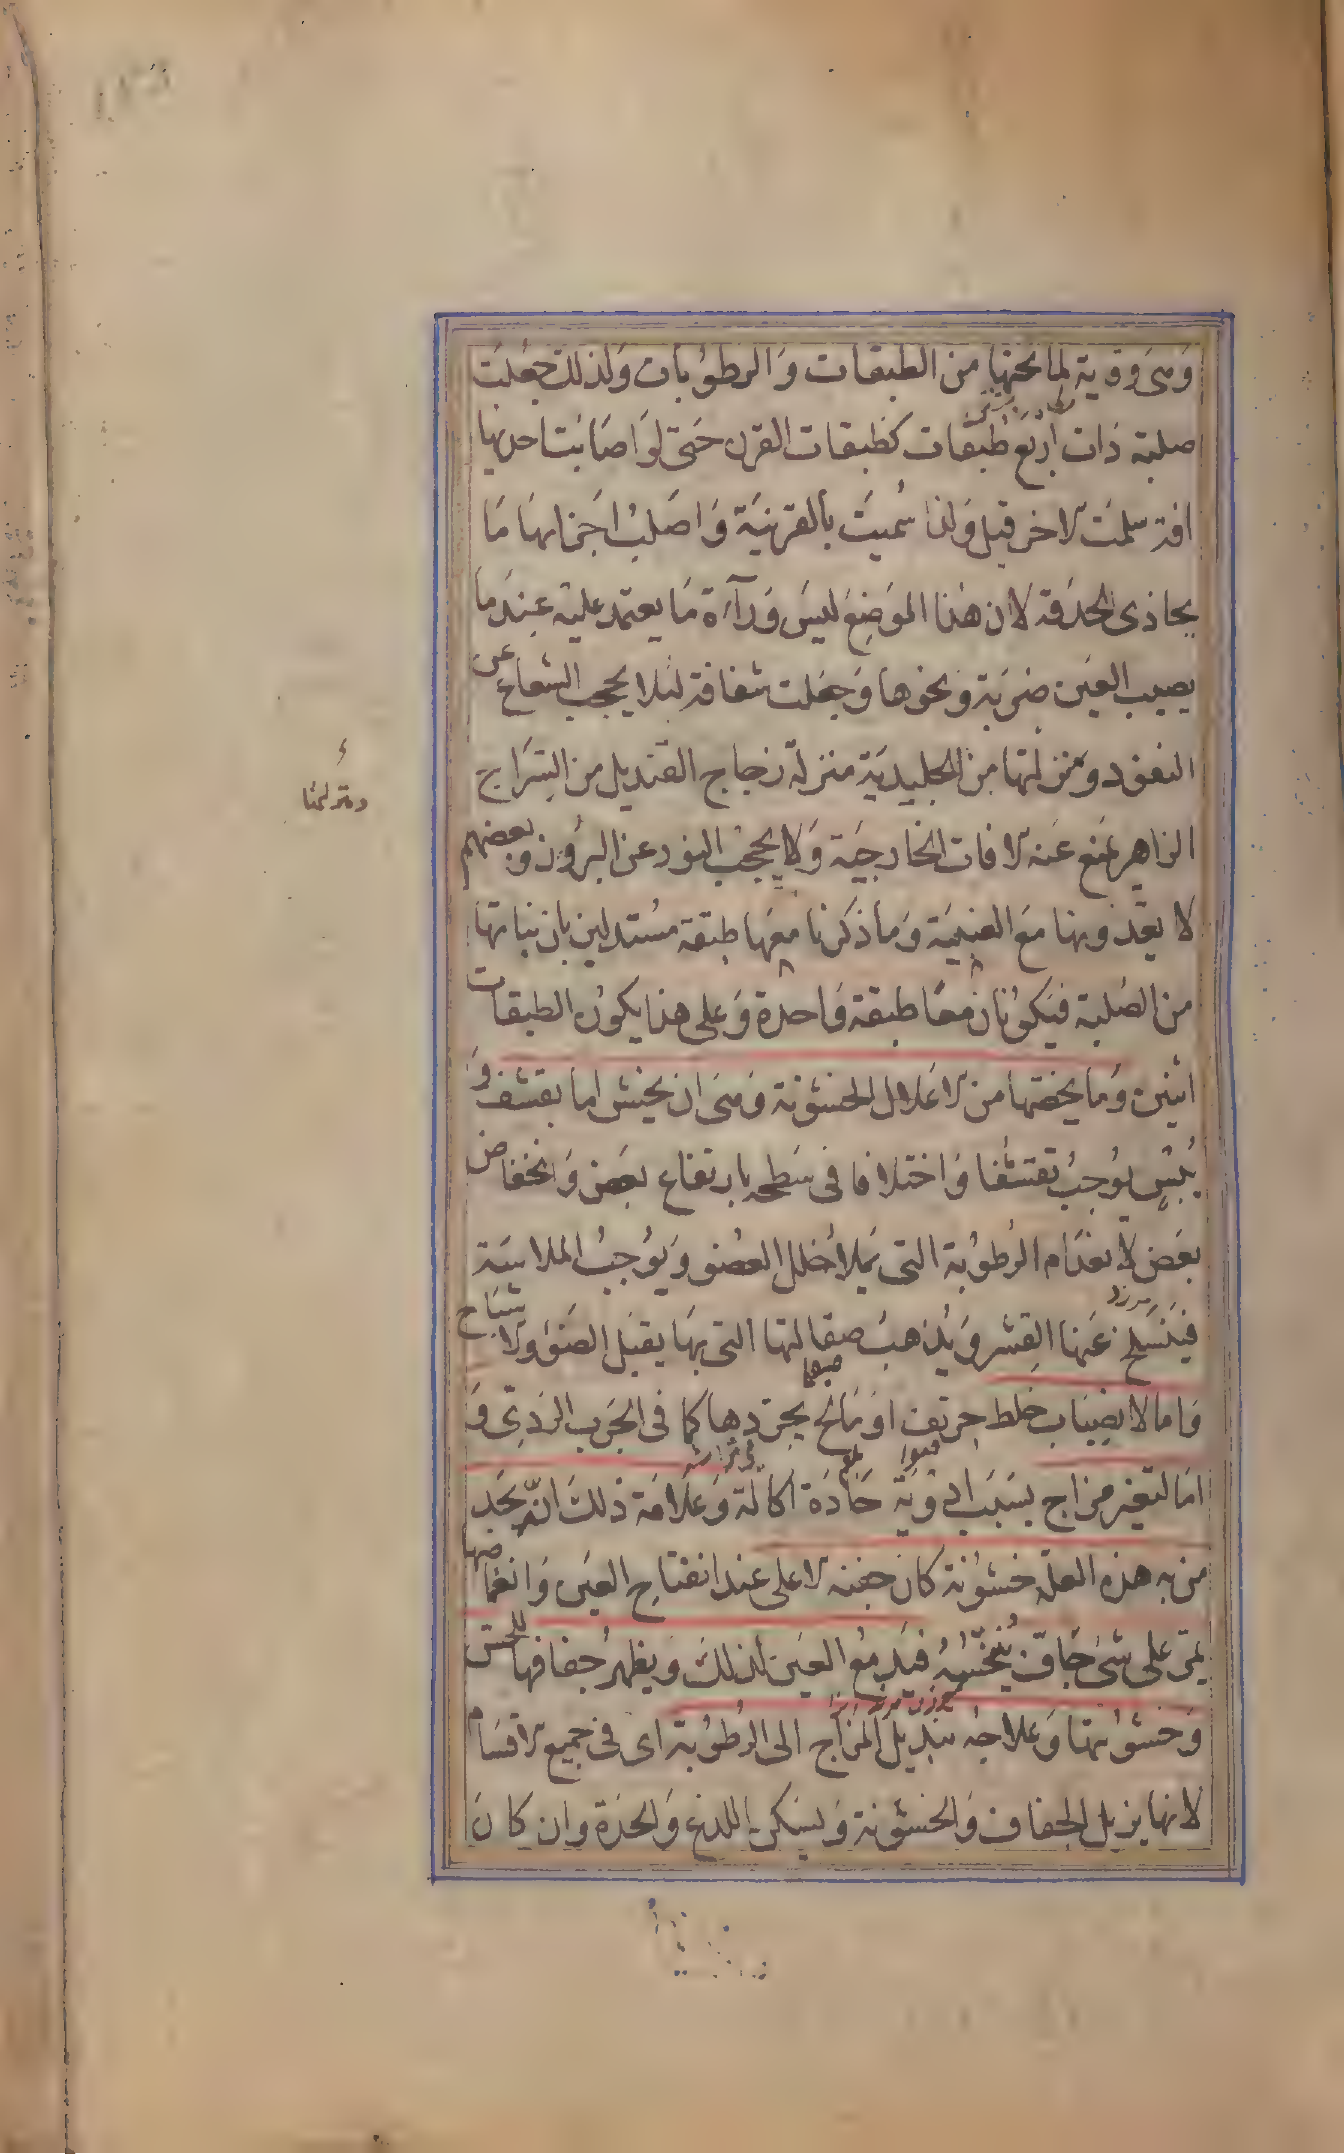 وَهى وقاية لما تحتها من الطبقات وَالرطوُبات وَلذلك جعُلت
صلبة ذات اربَع طبقات كطبقات القرن حَتى لوَ اصَابَت احديها
افة سلمَت الاخر قيل وَلذا سُميَت بالقرنيَة وَاصَلبُ اجَزائها مَا
يحاذى الحدَقة لان هٰذا الموَضِعَ ليسَ وَرآءَهُ مَا يعتمد عليْه عِندَ ما
يصيب العيَن ضرَبة وَنحوها وَجعَلت شفافة لئلا يحجب الشعاع عن
النفوذ وَمنزلتها مِنَ الجليديَة منزلة زجاج القنديل من السِرَاج
الزاهر يمنع عَنه الافات الخارجيَة وَلا يحجبُ النور عن البرُوز وَبعضهم
لا يعَدوُنها مَعَ العنبيَة وَما ذكرنا معَها طبقة مسُتدلين بان نباتها
من الصُلبة فيَكوُنان معًا طبقة وَاحدة وَعلى هذا يكوُن الطبقات
اثنين وَما يخصّها من الاعَلال الخشونة وَهىَ ان يخشن اما بقشف وَ
يُبسٍ يوُجبُ تقشفا وَاختلافا فى سَطحه بارتفاع بعَض وَانخفاض
بعَض لانعدَام الرُطوُبة التى يَملاءُ خلل العضو وَيوُجبُ الملاسَة
فيَنسَلخ عَنها القِشر وَيُذهبَ صقالتها التى بهَا يقبَل الضَوْء وَالاشبَاح
وَاما لانصِبَاب خلط حِرّيف اوَ مَالح يجرّدها كما فى الجَرَب الرَدِىّ وَ
امَا لتغيّر مزاج بسَبَب ادوَيَة حَادّة اكالة وَعلَامَة ذلكَ انّه يجَد
من به هذه العلّة خشوُنة كان جفنه الاعلى عند انفتاحِ العيَن وَانغماضها
يمَرّ على شىَء جَافّ يُخَشّنُهُ فيَدمعُ العيَن لذلكَ وَيظهرُ جفافها للحسّ
وَخشوُنتها وَعلاجُه تبديل المزَاج الى الرُطوُبة اى فى جميع الاقسَام
لانها يزيل الجفاف وَالخشوُنة وَيسَكن اللذع وَالحدَة وَان كانَ